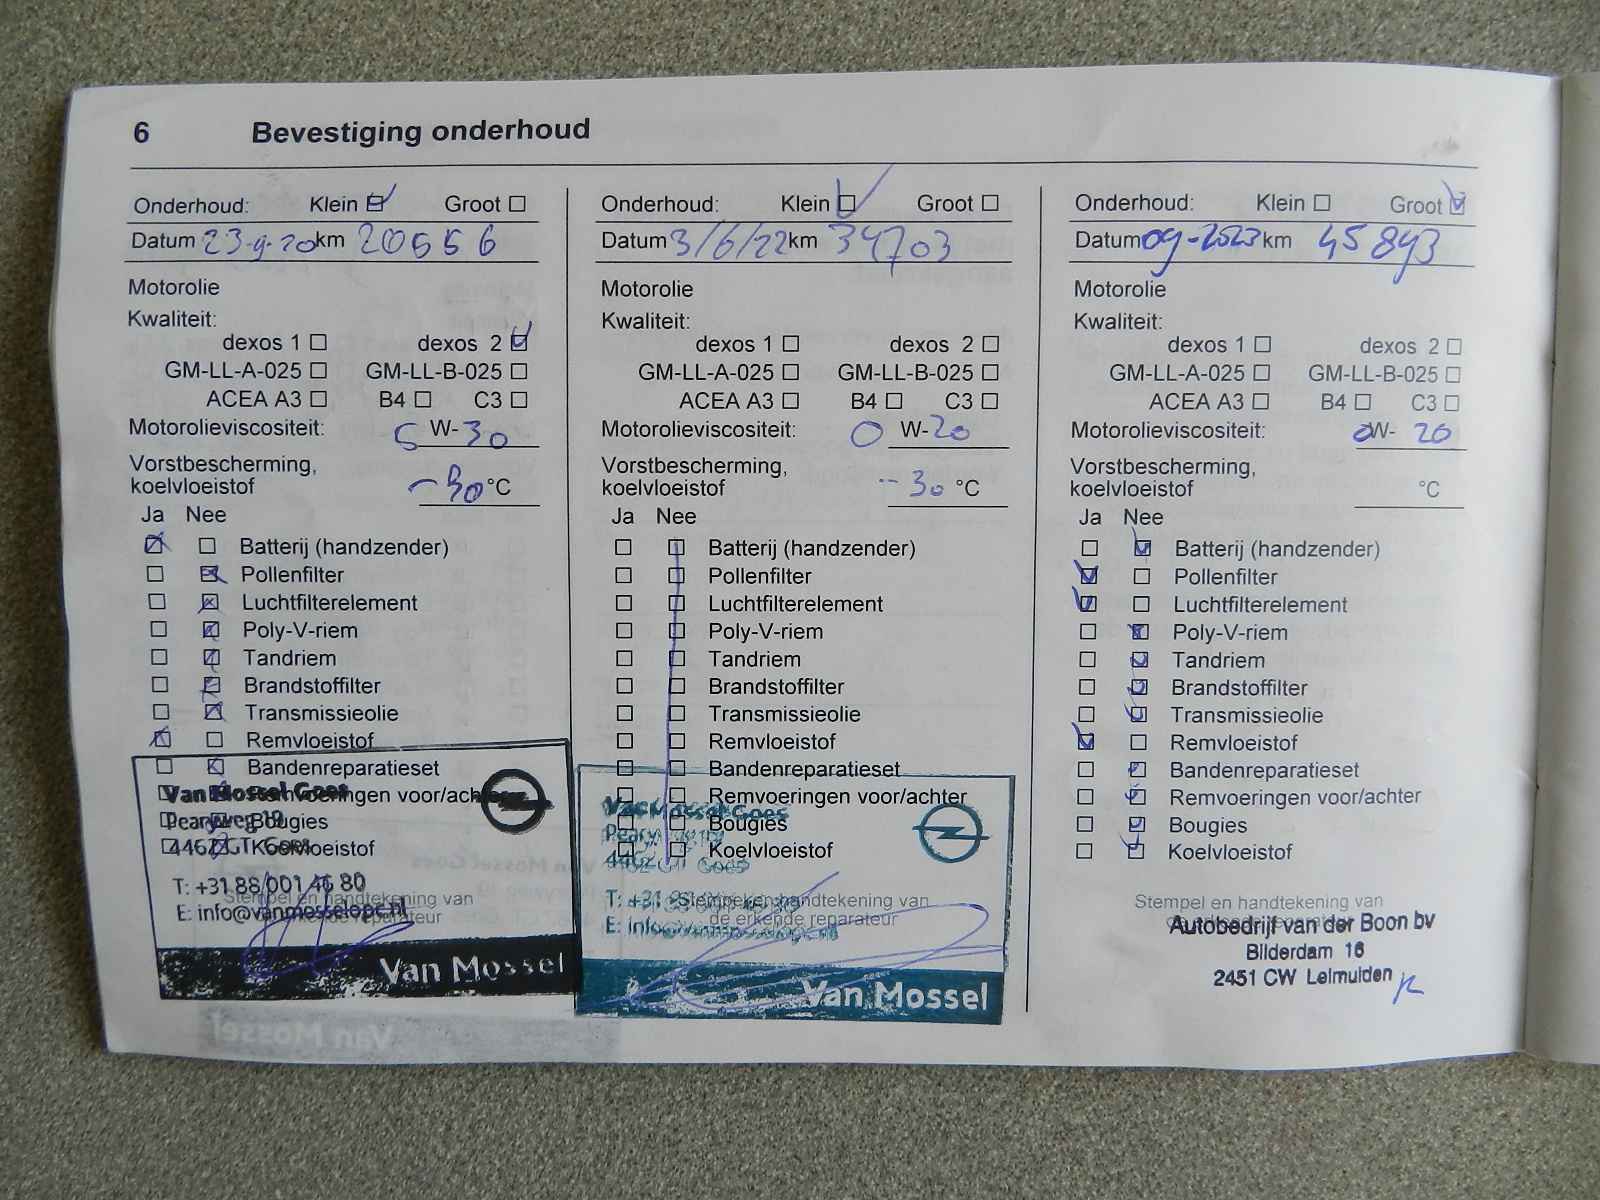 6 Bevestiging onderhoud
Onderhoud: Klein Groot
Datum 23-9-20 km 20556
Motorolie
Kwaliteit:
dexos 1 dexos 2
GM-LL-A-025 GM-LL-B-025
ACEA A3 B4 C3
Motorolieviscositeit: 5 W-30
Vorstbescherming,
koelvloeistof -30 °C
Ja Nee
Batterij (handzender)
Pollenfilter
Luchtfilterelement
Poly-V-riem
Tandriem
Brandstoffilter
Transmissieolie
Remvloeistof
Bandenreparatieset
Remvoeringen voor/achter
Bougies
Koelvloeistof
Van Mossel Goes
Pearyweg 19
4462GT Goes
T: +31 88 001 46 80
Stempel en handtekening van
E: info@vanmosselopel.nl
de erkende reparateur
Van Mossel
Onderhoud: Klein Groot
Datum 3/6/22 km 34703
Motorolie
Kwaliteit:
dexos 1 dexos 2
GM-LL-A-025 GM-LL-B-025
ACEA A3 B4 C3
Motorolieviscositeit: 0 W-20
Vorstbescherming,
koelvloeistof -30 °C
Ja Nee
Batterij (handzender)
Pollenfilter
Luchtfilterelement
Poly-V-riem
Tandriem
Brandstoffilter
Transmissieolie
Remvloeistof
Bandenreparatieset
Remvoeringen voor/achter
Bougies
Koelvloeistof
Van Mossel Goes
4462 GT Goes
Stempel en handtekening van
de erkende reparateur
Van Mossel
Onderhoud: Klein Groot
Datum 09-2023 km 45893
Motorolie
Kwaliteit:
dexos 1 dexos 2
GM-LL-A-025 GM-LL-B-025
ACEA A3 B4 C3
Motorolieviscositeit: 0W- 20
Vorstbescherming,
koelvloeistof °C
Ja Nee
Batterij (handzender)
Pollenfilter
Luchtfilterelement
Poly-V-riem
Tandriem
Brandstoffilter
Transmissieolie
Remvloeistof
Bandenreparatieset
Remvoeringen voor/achter
Bougies
Koelvloeistof
Stempel en handtekening van
de erkende reparateur
Autobedrijf van der Boon bv
Bilderdam 16
2451 CW Leimuiden